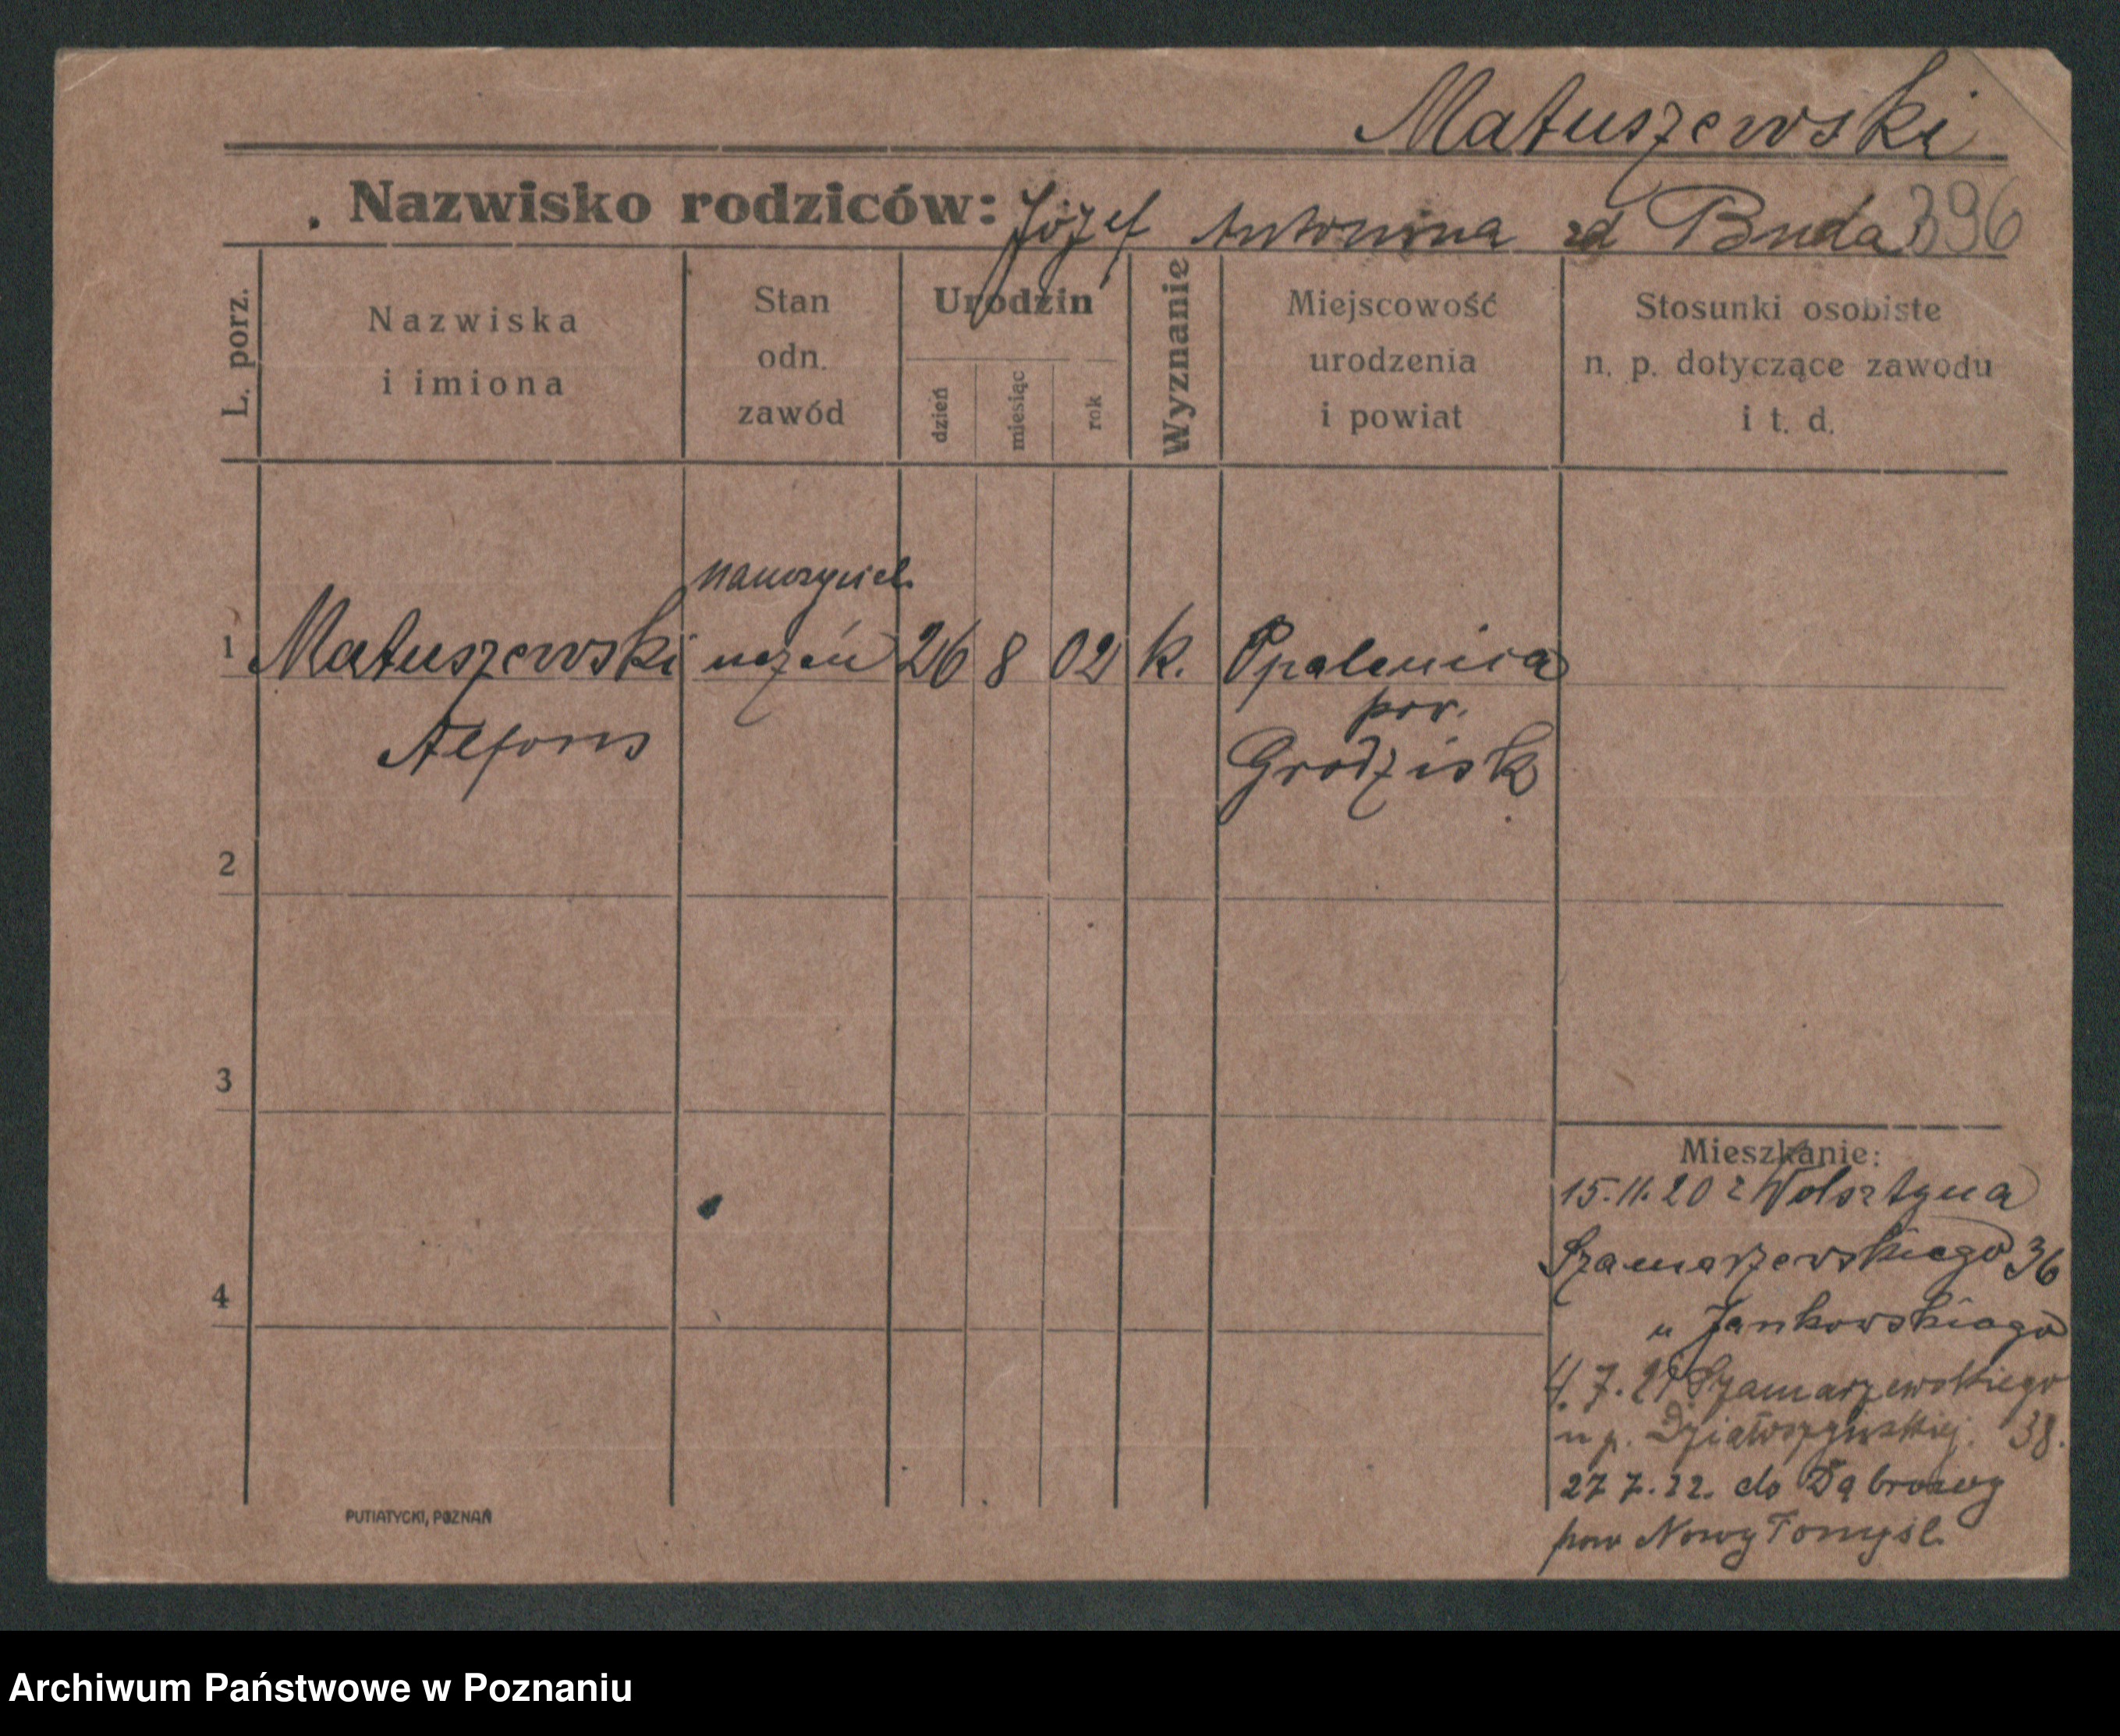 Matuszewski
Nazwisko rodziców: Józef Antonina zd Buda 396
L. porz.
Nazwiska
i imiona
Stan
odn.
zawód
Urodzin
dzień
miesiąc
rok
Wyznanie
Miejscowość
urodzenia
i powiat
Stosunki osobiste
n. p. dotyczące zawodu
i t. d.
nauczyciel.
1 Matuszewski uczeń 26 8 02 k. Opalenica
pow.
Alfons Grodzisk
2
3
4
Mieszkanie:
15.11.20 z Wolsztyna
Szamarzewskiego 36
u Jankowskiego
4.7.21 Szamarzewskiego
u p. Działoszyńskiej. 38.
27 7.22. do Dąbrowy
pow Nowy Tomyśl.
PUTIATYCKI, POZNAŃ
Archiwum Państwowe w Poznaniu